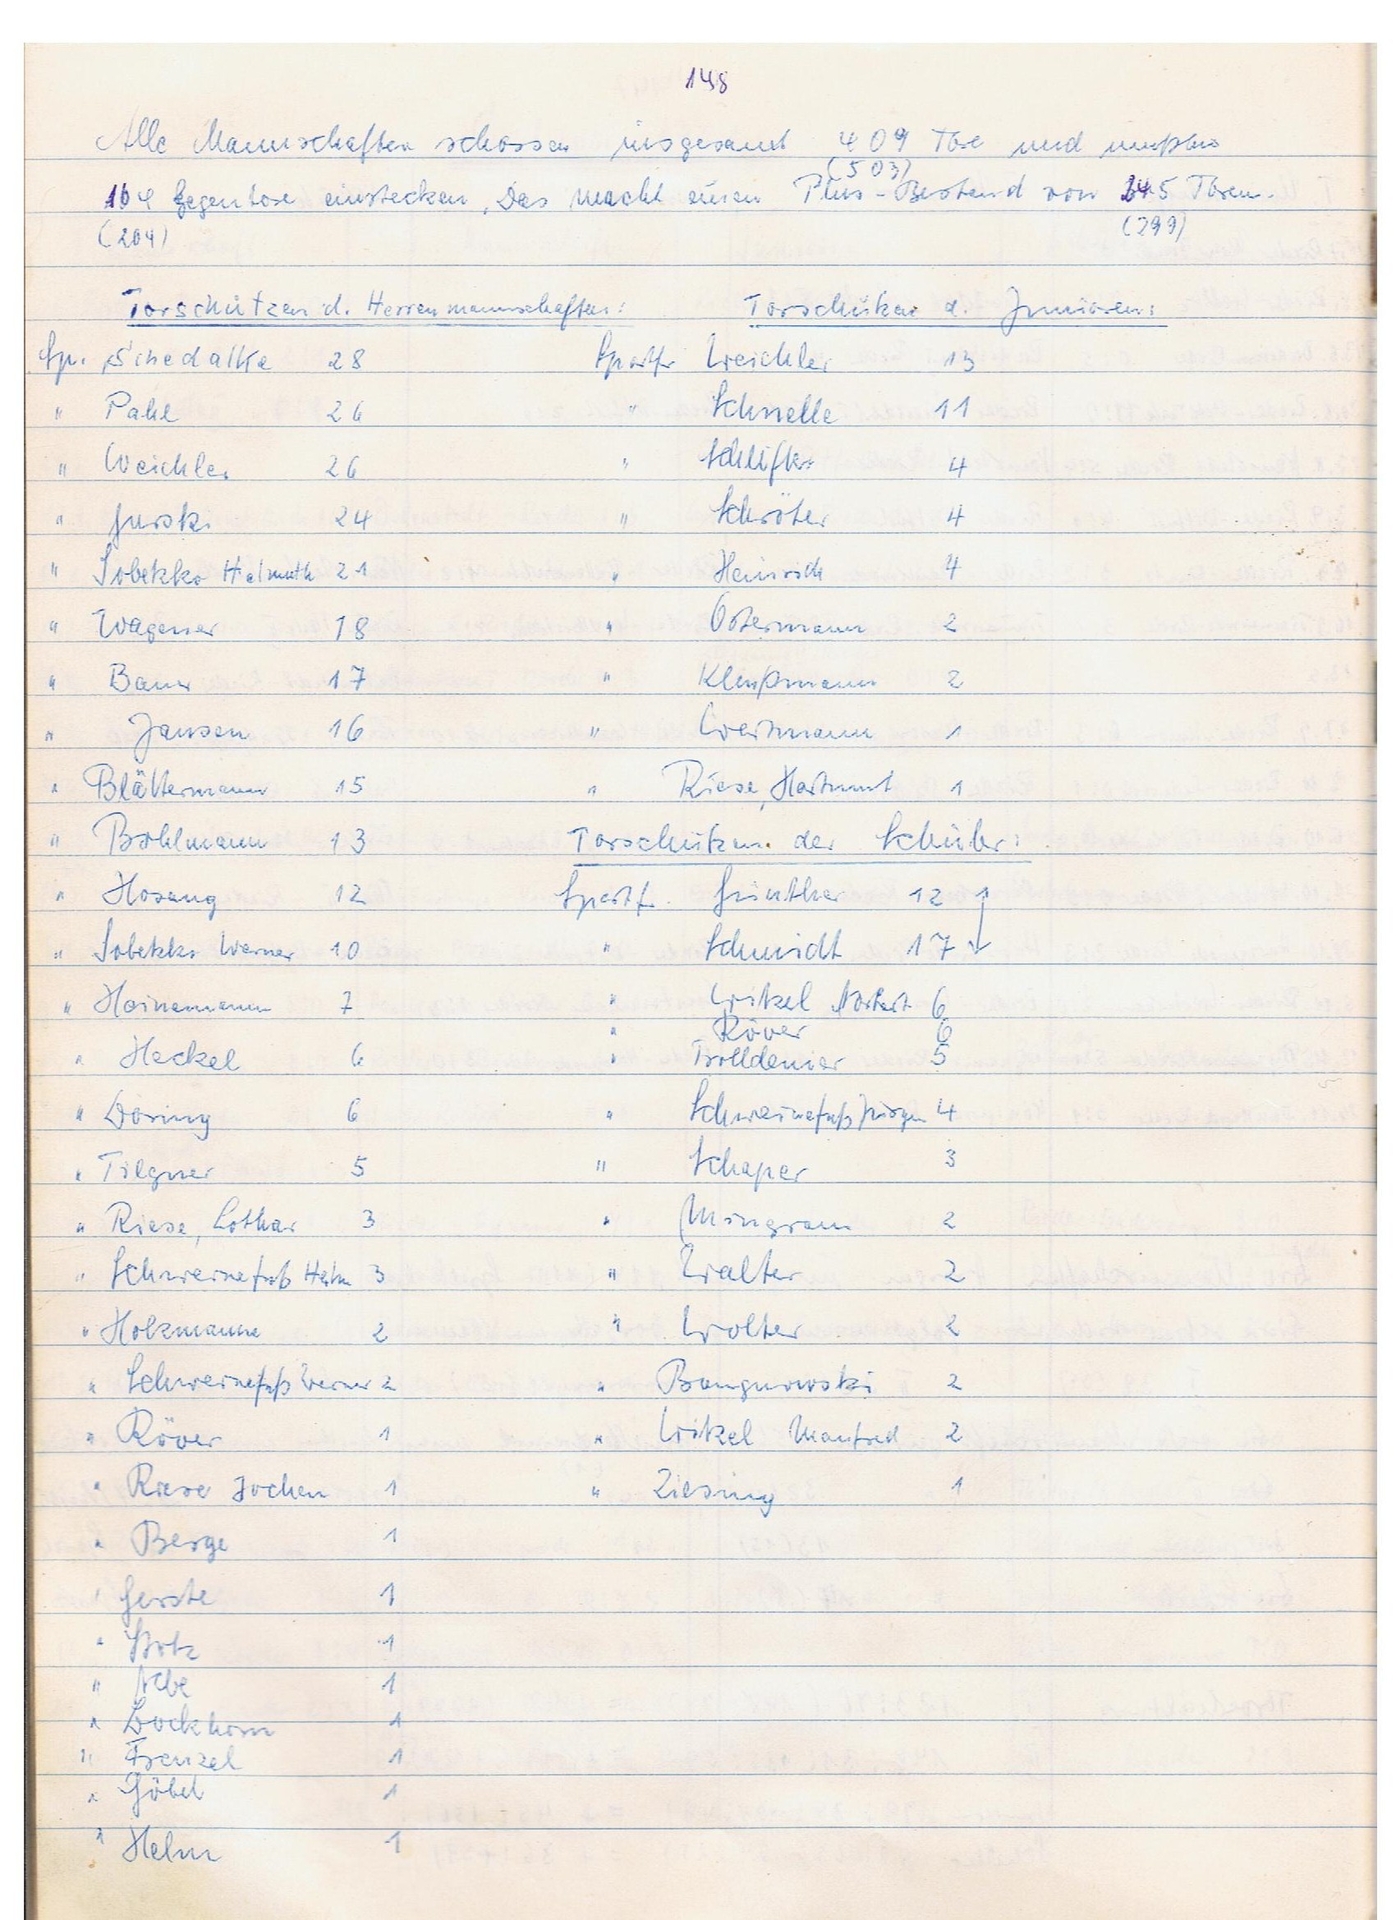 148
Alle Mannschaften schossen insgesamt 409 Tore und mußten
(503)
164 Gegentore einstecken. Das macht einen Plus-Bestand von 245 Toren.
(204) (299)
Torschützen d. Herrenmannschaften:
Sp. Schedalke 28
" Pahl 26
" Weichler 26
" Jurski 24
" Sobetzko Helmuth 21
" Wagener 18
" Bauer 17
" Jansen 16
" Blättermann 15
" Bohlmann 13
" Hosang 12
" Sobetzko Werner 10
" Heinemann 7
" Heckel 6
" Döring 6
" Tilgner 5
" Riese, Lothar 3
" Schweinefuß Helm 3
" Holzmann 2
" Schweinefuß Werner 2
" Röver 1
" Riese Jochen 1
" Berge 1
" Gerste 1
" 1
" 1
" Lockhorn 1
" Frenzel 1
" Göbel 1
" Helm 1
Torschützen d. Junioren:
Sportfr. Weichler 13
" Schnelle 11
" 4
" Schröter 4
" Heinrich 4
" Ostermann 2
" Kleißmann 2
" Weitzmann 1
" Riese, Hartmut 1
Torschützen der Schüler:
Sportf. Günther 12
" Schmidt 17
" Witzel Norbert 6
" Röver 6
" Trolldenier 5
" Schweinefuß Jürgen 4
" Schaper 3
" Mingram 2
" Walter 2
" Wolter 2
" 2
" Witzel Manfred 2
" Ziesing 1